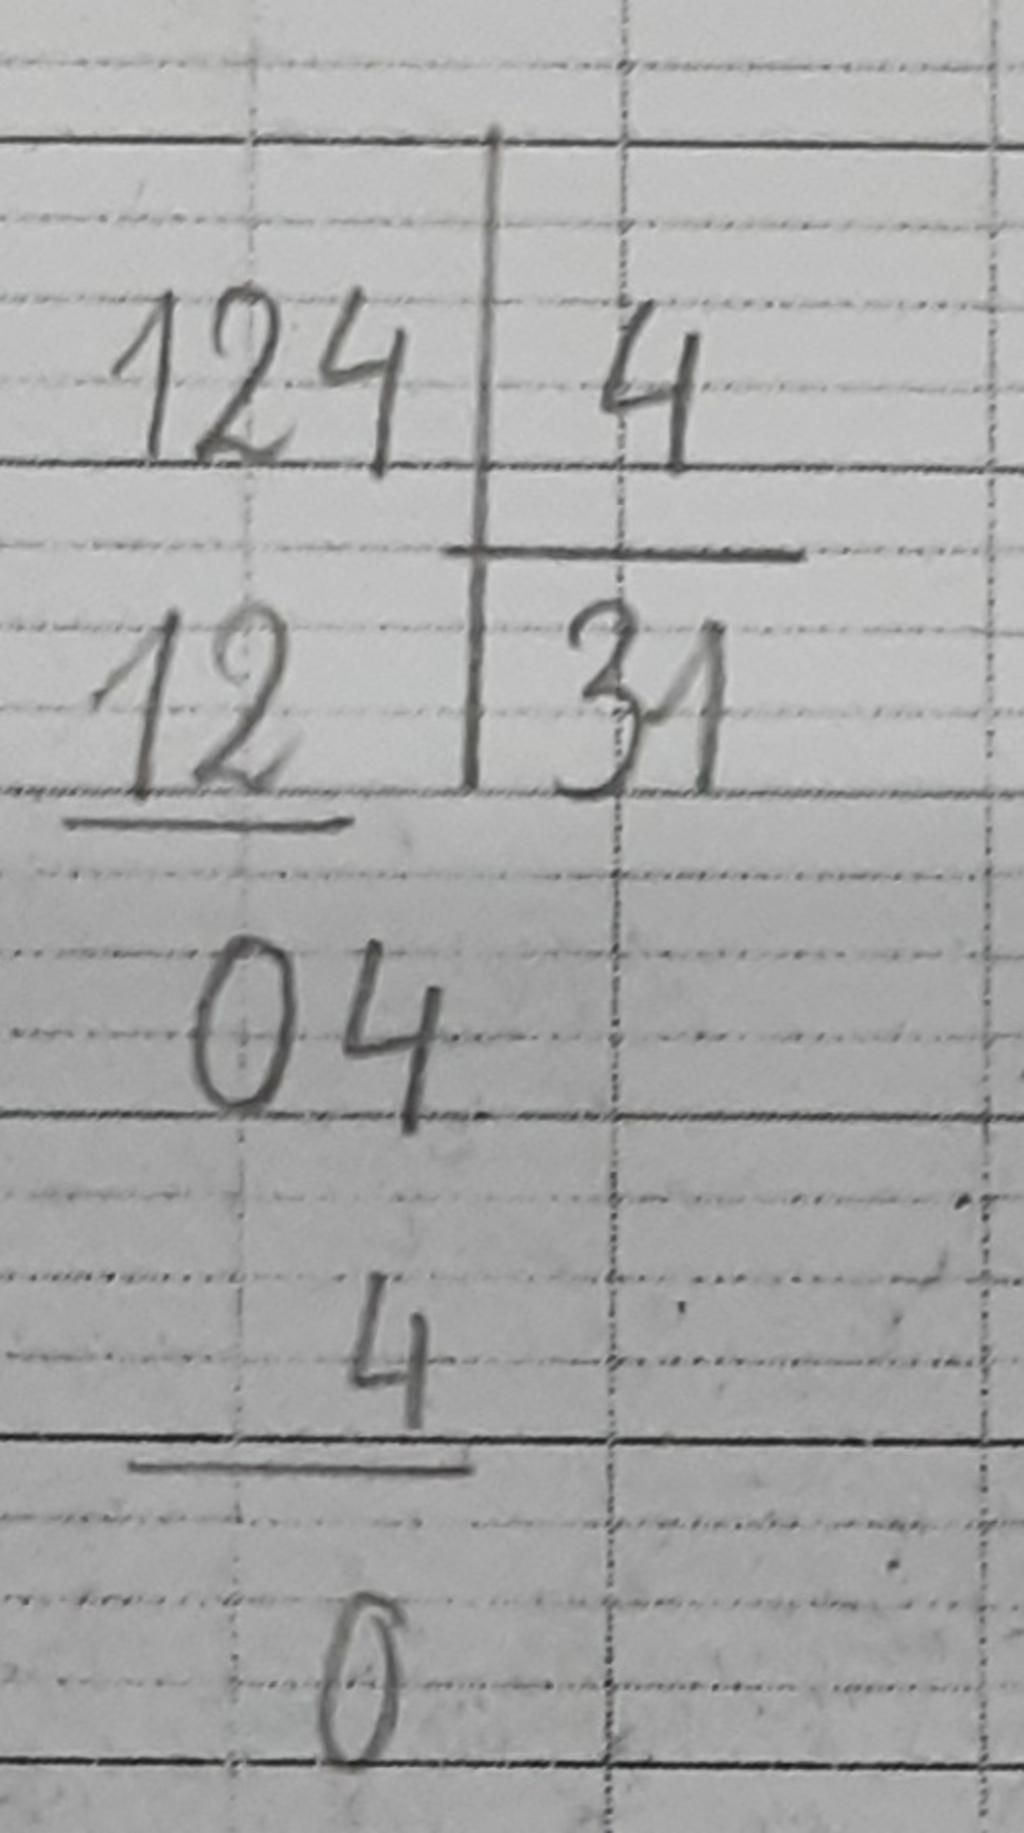 124 4
12 31
04
4
0